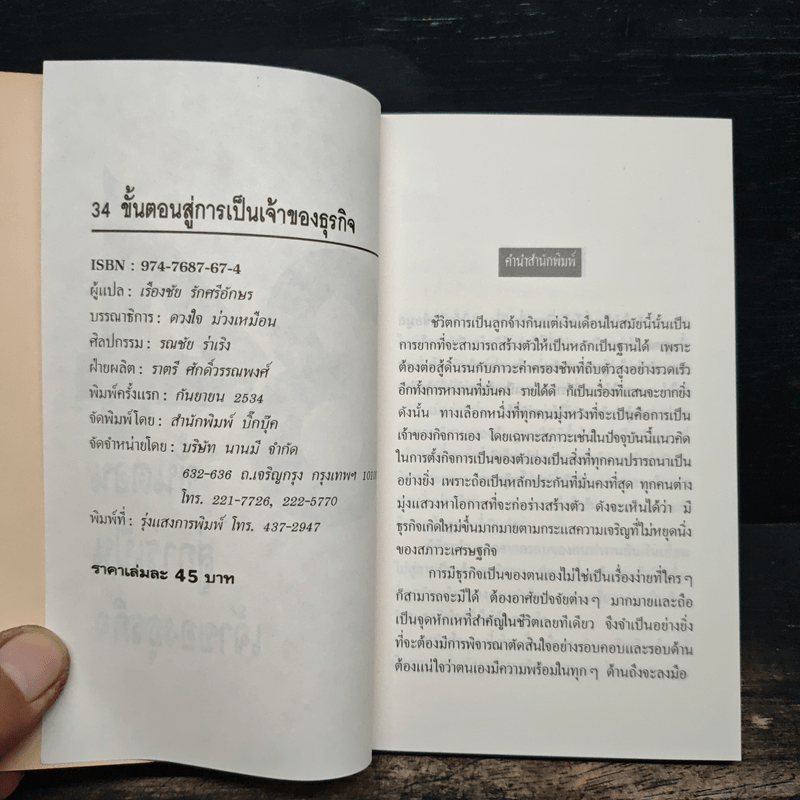 34 ขั้นตอนสู่การเป็นเจ้าของธุรกิจ
ISBN : 974-7687-67-4
ผู้แปล : เรืองชัย รักศรีอักษร
บรรณาธิการ : ดวงใจ ม่วงเหมือน
ศิลปกรรม : รณชัย ร่าเริง
ฝ่ายผลิต : ราตรี ศักดิ์วรรณพงศ์
พิมพ์ครั้งแรก : กันยายน 2534
จัดพิมพ์โดย : สำนักพิมพ์ บิ๊กบุ๊ค
จัดจำหน่ายโดย : บริษัท นานมี จำกัด
632-636 ถ.เจริญกรุง กรุงเทพฯ
โทร. 221-7726, 222-5770
พิมพ์ที่ : รุ่งแสงการพิมพ์ โทร. 437-2947
ราคาเล่มละ 45 บาท
คำนำสำนักพิมพ์
ชีวิตการเป็นลูกจ้างกินแต่เงินเดือนในสมัยนี้นั้นเป็น
การยากที่จะสามารถสร้างตัวให้เป็นหลักเป็นฐานได้ เพราะ
ต้องต่อสู้ดิ้นรนกับภาวะค่าครองชีพที่ถีบตัวสูงอย่างรวดเร็ว
อีกทั้งการหางานที่มั่นคง รายได้ดี ก็เป็นเรื่องที่แสนจะยากยิ่ง
ดังนั้น ทางเลือกหนึ่งที่ทุกคนมุ่งหวังที่จะเป็นคือการเป็น
เจ้าของกิจการเอง โดยเฉพาะสภาวะเช่นในปัจจุบันนี้แนวคิด
ในการตั้งกิจการเป็นของตัวเองเป็นสิ่งที่ทุกคนปรารถนาเป็น
อย่างยิ่ง เพราะถือเป็นหลักประกันที่มั่นคงที่สุด ทุกคนต่าง
มุ่งแสวงหาโอกาสที่จะก่อร่างสร้างตัว ดังจะเห็นได้ว่า มี
ธุรกิจเกิดใหม่ขึ้นมากมายตามกระแสความเจริญที่ไม่หยุดนิ่ง
ของสภาวะเศรษฐกิจ
การมีธุรกิจเป็นของตนเองไม่ใช่เป็นเรื่องง่ายที่ใคร ๆ
ก็สามารถจะมีได้ ต้องอาศัยปัจจัยต่าง ๆ มากมายและถือ
เป็นจุดหักเหที่สำคัญในชีวิตเลยทีเดียว จึงจำเป็นอย่างยิ่ง
ที่จะต้องมีการพิจารณาตัดสินใจอย่างรอบคอบและรอบด้าน
ต้องแน่ใจว่าตนเองมีความพร้อมในทุก ๆ ด้านถึงจะลงมือ